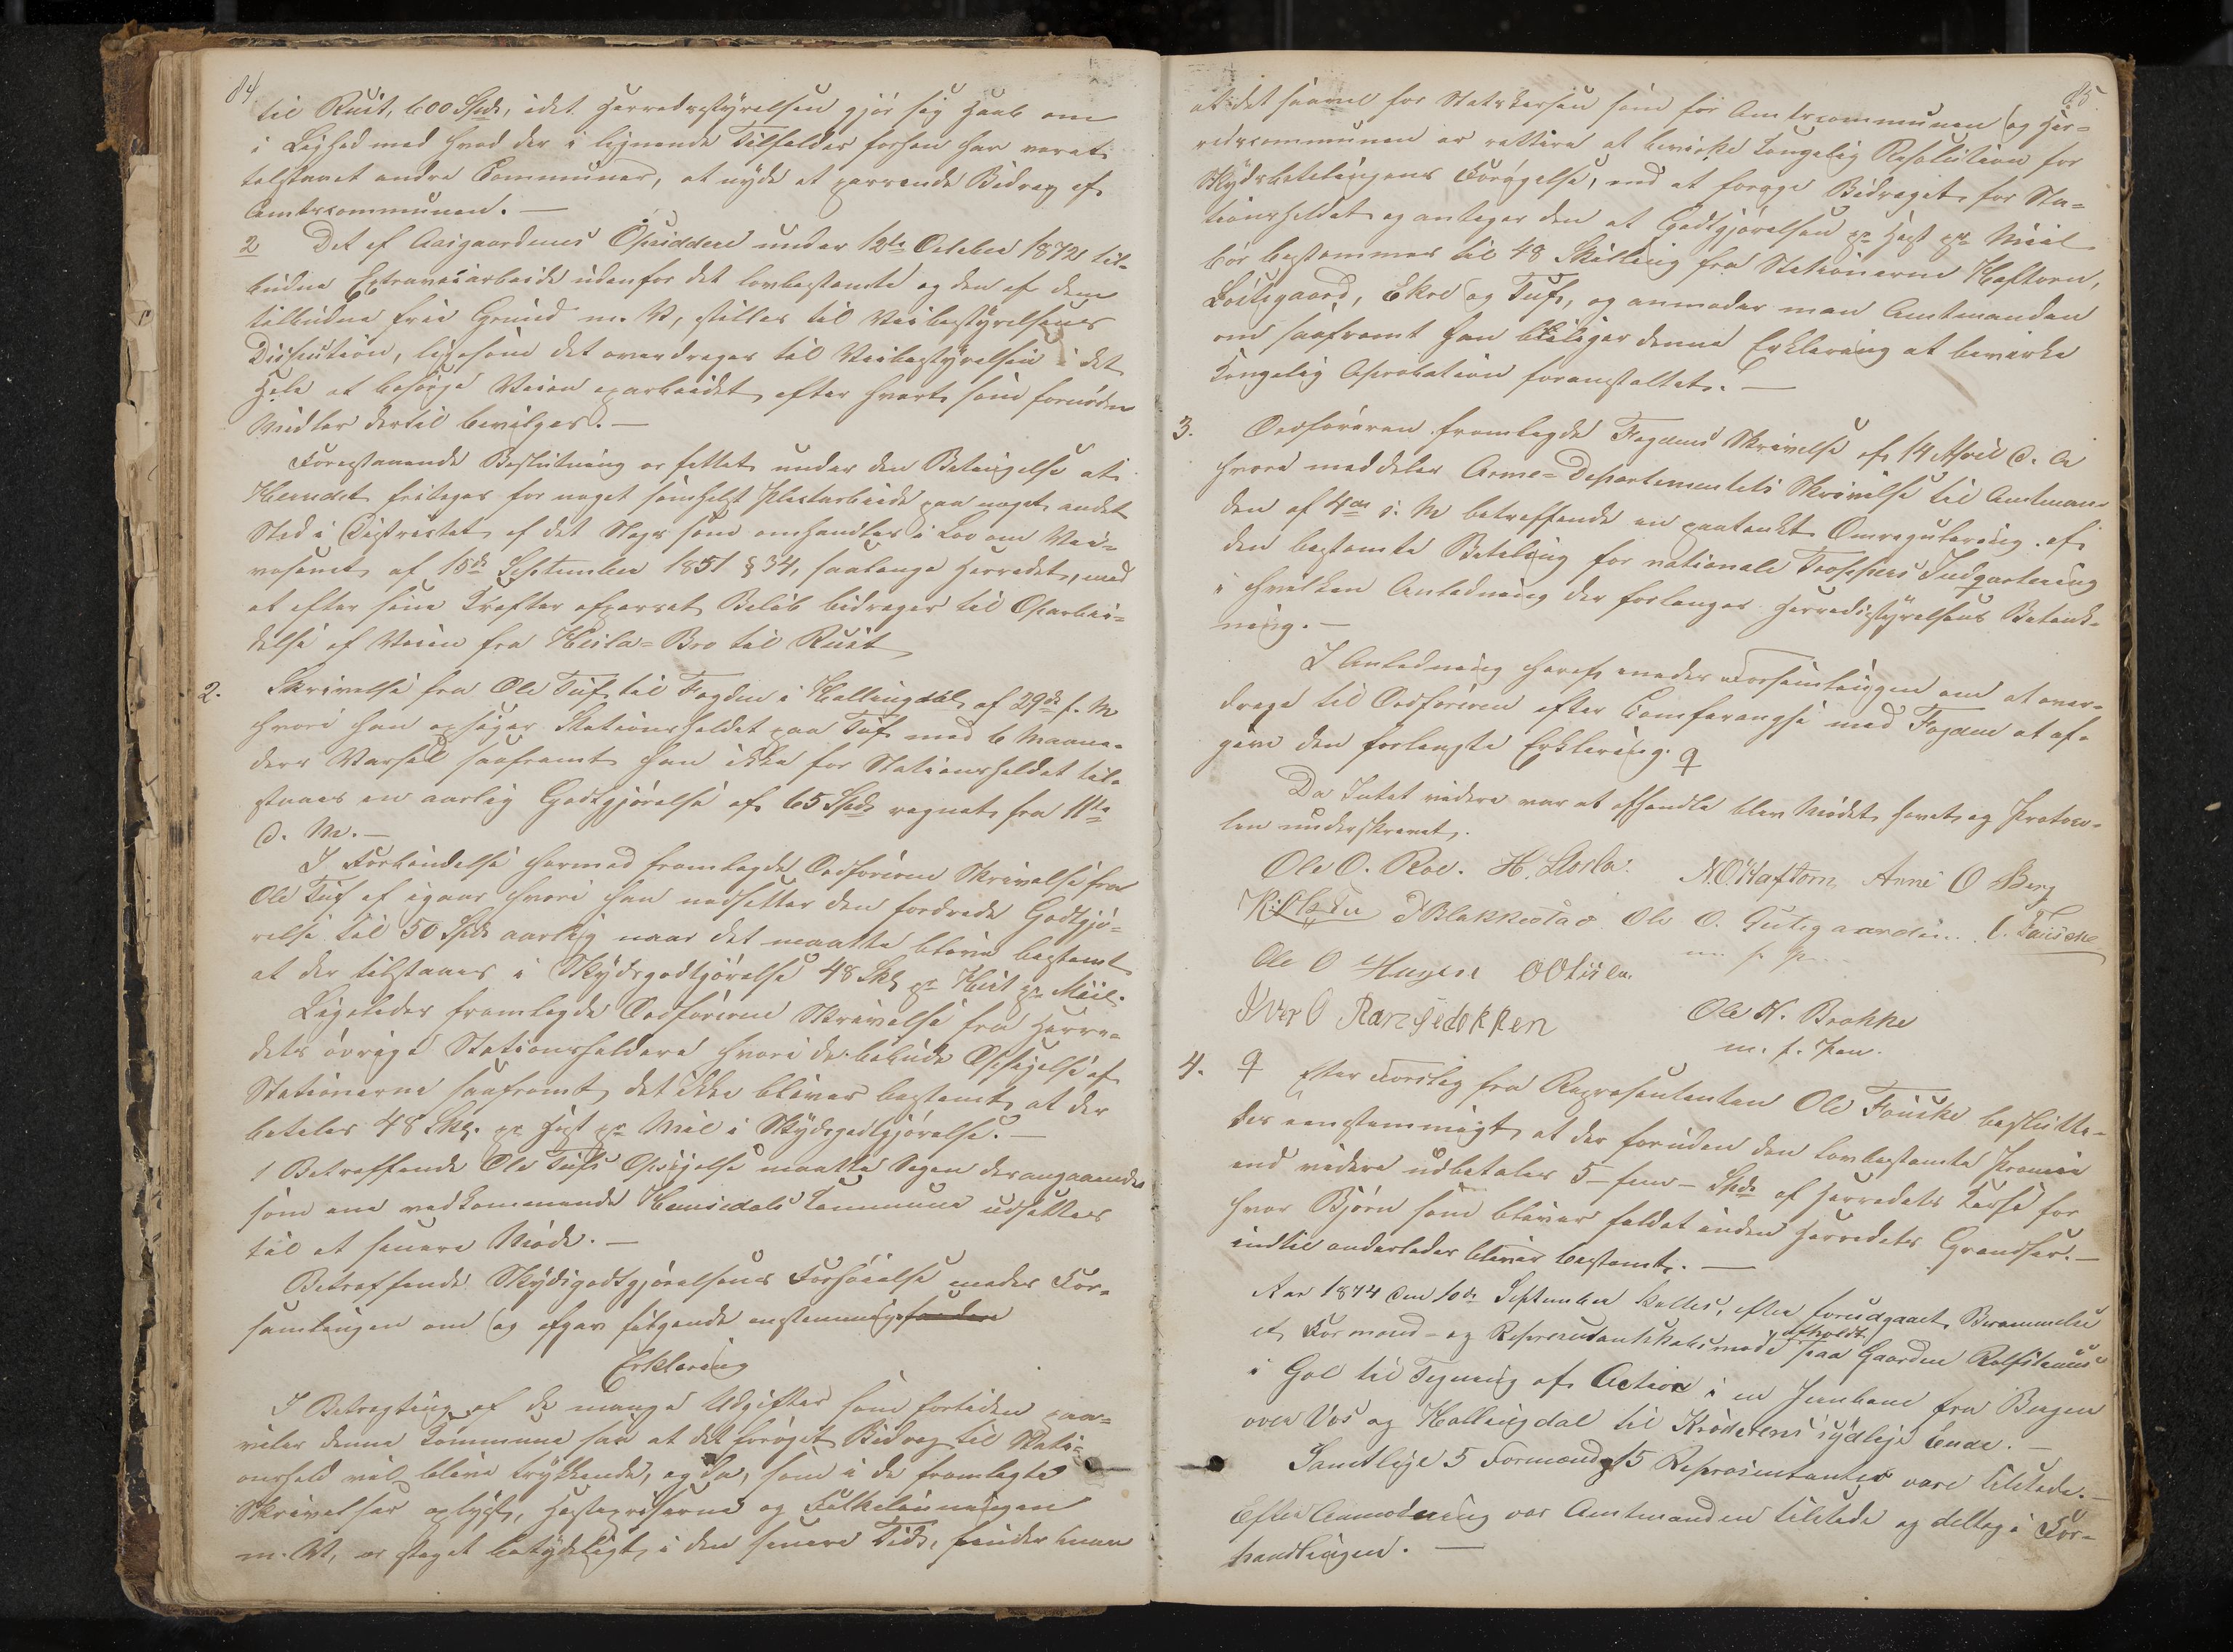 84
til Rust, 600 Spd, idet Herredsstyrelsen gjør sig Haab om
i Lighed med hvad der i lignende Tilfælder forhen har været
tilstaaet andre Communer, at nyde et passende Bidrag af
Amtscommunen. —
2 Det af Aasgaardenes Opsiddere under 12te October 1872 til-
budne Extraveiarbeide udenfor det lovbestemte og den af dem
tilbudne frie Grund m. V, stilles til Veibestyrelsens
Disposition, ligesom det overdrages til Veibestyrelsen i det
Hele at besørge Veien oparbeidet, efter hvert som fornødne
Midler dertil bevilges. —
Forestaaende Beslutning er fattet under den Betingelse at
Herredet fritages for noget somhelst Pligtarbeide paa noget andet
Sted i Districtet af det Slags som omhandles i Lov om Vei-
væsenet af 15de September 1851 § 34, saalænge Herredet, med
et efter sine Kræfter afpasset Beløb bidrager til Oparbei-
delse af Veien fra Heslabro til Rust
2. Skrivelse fra Ole Tuf til Fogden i Hallingdal af 29de f. M
hvori han opsiger Stationsholdet paa Tuf med 6 Maane-
ders Varsel saafremt han ikke for Stationsholdet til-
staaes en aarlig Godtgjørelse af 65 Spd regnet fra 11te
d. M. —
I Forbindelse hermed fremlagde Ordføreren Skrivelse fra
Ole Tuf af igaar hvori han nedsætter den fordrede Godtgjø-
relse til 50 Spd aarlig naar det maatte blive bestemt
at der tilstaaes i Skydsgodtgjørelse 48 Sk pr Hest pr Miil.
Ligeledes fremlagde Ordføreren Skrivelse fra Herre-
dets øvrige Stationsholdere hvori de bebude Opsigelse af
Stationerne saafremt det ikke bliver bestemt at der
betales 48 Sk. pr Hest pr Mil i Skydsgodtgjørelse. —
1 Betreffende Ole Tufs Opsigelse maatte Sagen derangaaende
som ene vedkommende Hemsedals Commune udsættes
til et senere Møde. —
Betreffende Skydsgodtgjørelsens Forhøielse enedes For-
samlingen om og afgav følgende enstemmige
Erklæring
I Betragtning af de mange Udgifter som fortiden paa-
hviler denne Commune saa at det forøget Bidrag til Stati-
onshold vil blive trykkende, og da, som i de fremlagte
Skrivelser oplyst, Hestepriserne og Folkelønningen
m. V, er steget betydeligt i den senere Tid, finder man
85
at det saavel for Statskassen som for Amtscommunen og Her-
redscommunen er rettere at bevirke Kongelig Resolution for
Skydsbetalingens Forøgelse, end at forøge Bidraget for Sta-
tionsholdet og antager den at Godtgjørelsen pr Hest pr Miil
bør bestemmes til 48 Skilling fra Stationerne Haftorn,
Løstegaard, Ekre og Tuf, og anmoder man Amtmanden
om saafremt han billiger denne Erklæring at bevirke
Kongelig Approbation foranstaltet. —
3. Ordføreren fremlagde Fogdens Skrivelse af 14 April d. A
hvori meddeles Arme-Departementets Skrivelse til Amtman-
den af 4de s. M betreffende en paatænkt Omregulering af
den bestemte Betaling for nationale Troppers Indqvartering
i hvilken Anledning der forlanges Herredsstyrelsens Betænk-
ning. —
I Anledning heraf enedes Forsamlingen om at over-
drage til Ordføreren efter Conferangse med Fogden at af-
give den forlangte Erklæring.
Da Intet videre var at afhandle blev Mødet hævet og Protoco-
len underskrevet.
Ole O. Roe. H. Storla. N. O. Haftorn Arne O Berg
Blakkestad Ole O. Gutegaarden. O. Fauske
m. f. P.
Ole O Hagen O O
Iver O Randsedokken Ole K. Brokke
m. f. Pen.
4. Efter Forslag fra Repræsentanten Ole Fauske beslutte-
des eenstemmigt, at der foruden den lovbestemte Præmie
end videre udbetales 5 – fem – Spd af Herredets Kasse for
hver Bjørn som bliver fældet inden Herredets Grændser. —
indtil anderledes bliver bestemt. —
Aar 1874 den 10de September holdtes, efter forudgaaet Berammelse
et Formand- og Repræsentantskabsmøde afholdt paa Gaarden Rolfshuus
i Gol til Tegning af Actier i en Jernbane fra Bergen
over Vos og Hallingdal til Krøderens sydlige Ende. —
Samtlige 5 Formænd og 15 Repræsentanter vare tilstede. —
Efter Anmodning var Amtmanden tilstede og deltog i For-
handlingen. —